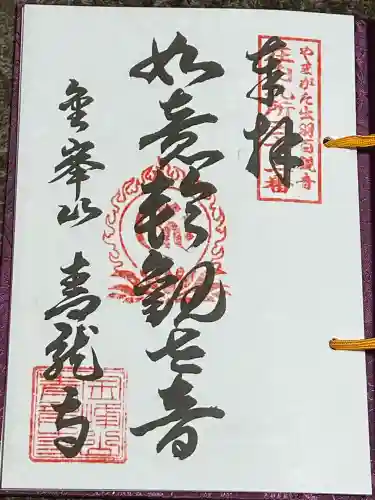 奉拝
やまがた出羽百観音
如意輪観世音
金峯山 青龍寺